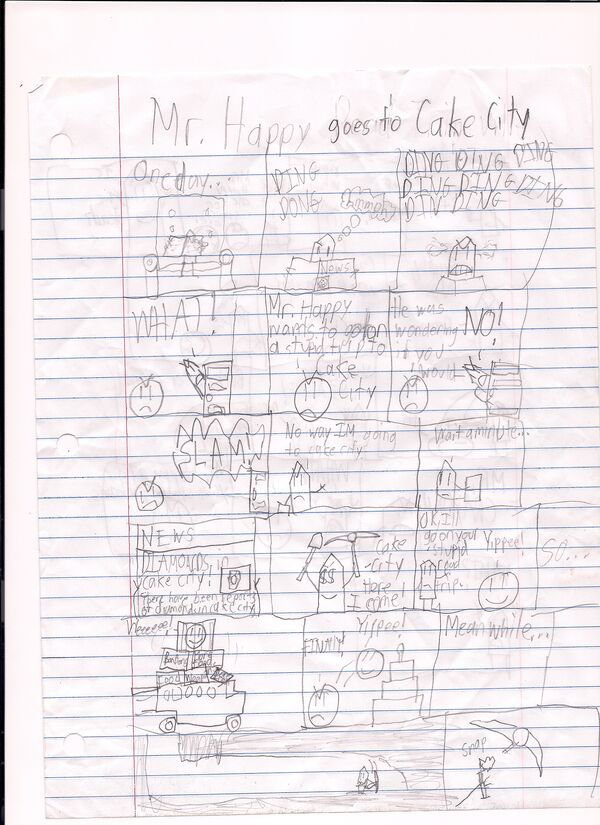 Mr. Happy goes to Cake City
One day...
DING
DONG
News
DING DING DING
DING DING DING
DIN DING
WHAT!
Mr. Happy
wants to go on
a stupid trip to
Cake
City
He was
wondering
if you
would
NO!
SLAM!
No way IM going
to cake city.
Wait a minute...
NEWS
DIAMONDS in
cake city!
There have been reports
of diamonds in cake city
$$
Cake
city
Here
I come!
OK, I'll
go on your
stupid
road
trip.
Yippee!
SO...
Food
FINALLY!
Yippee!
Meanwhile...
snap